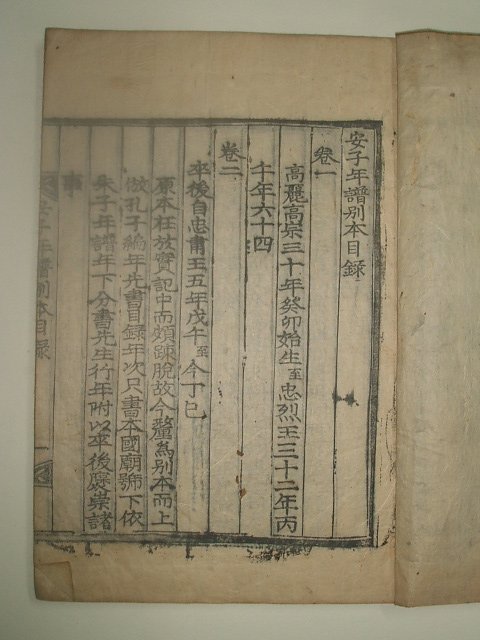 安子年譜別本目録
卷一
高麗高宗三十年癸卯始生至忠烈王三十二年丙
午年六十四
卷二
卒後自忠肅王五年戊午至今丁巳
原本在放實記中而頗踈脫故今釐為別本而上
倣孔子編年先書目録年次只書本國廟號下依
朱子年譜年下分書先生行年附以卒後褒崇諸
事
安子年譜別本目録